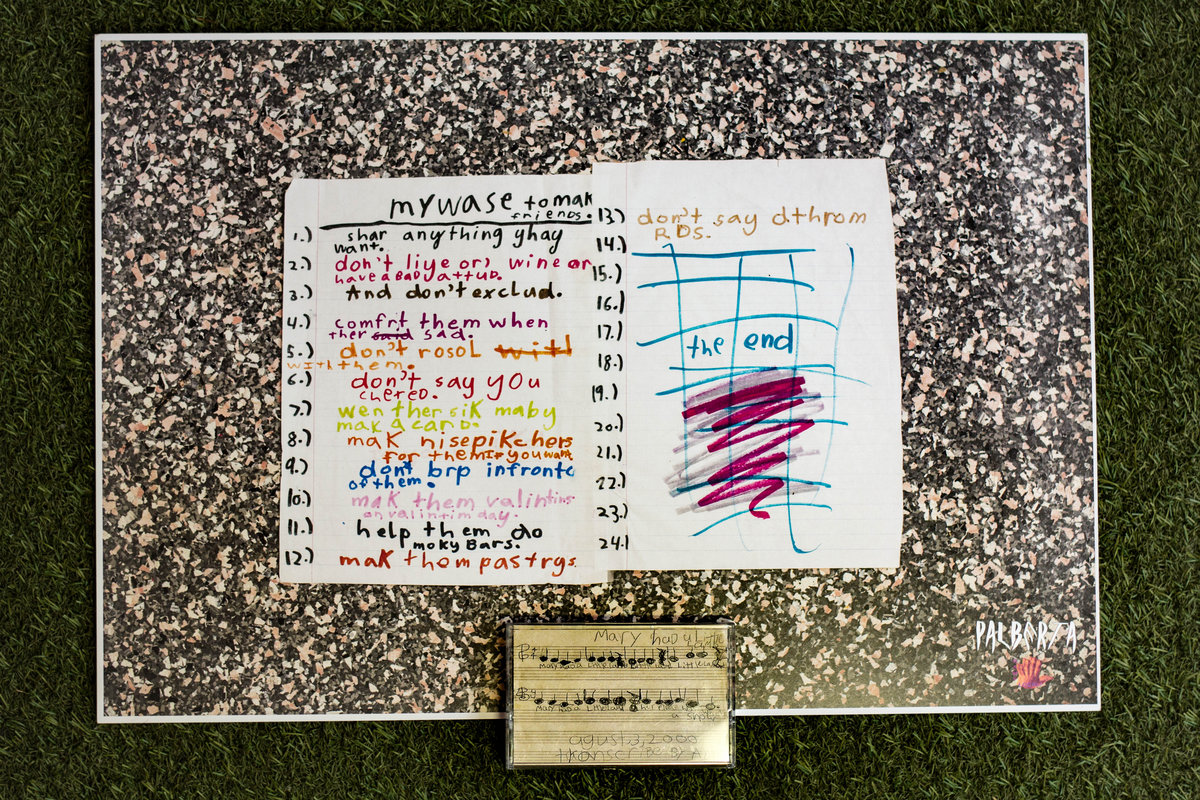 my wase to mak
friends.
1.) shar anything yhay
want.
2.) don't liye or, wine or
have a BaD attud.
3.) And don't exclud.
4.) comfrt them when
ther said sad.
5.) don't rosol with
with them.
6.) don't say you
chered.
7.) wen ther sik maby
mak a card.
8.) mak nise pikchers
for them if you want
9.) dont brp infront
of them.
10.) mak them valintins
on valintim day.
11.) help them do
moky Bars.
12.) mak them pastrys
13.) don't say dthrom
RDS.
14.)
15.)
16.)
17.)
the end
18.)
19.)
20.)
21.)
22.)
23.)
24.)
PALBORZA
Mary had a little
agust 3, 2000